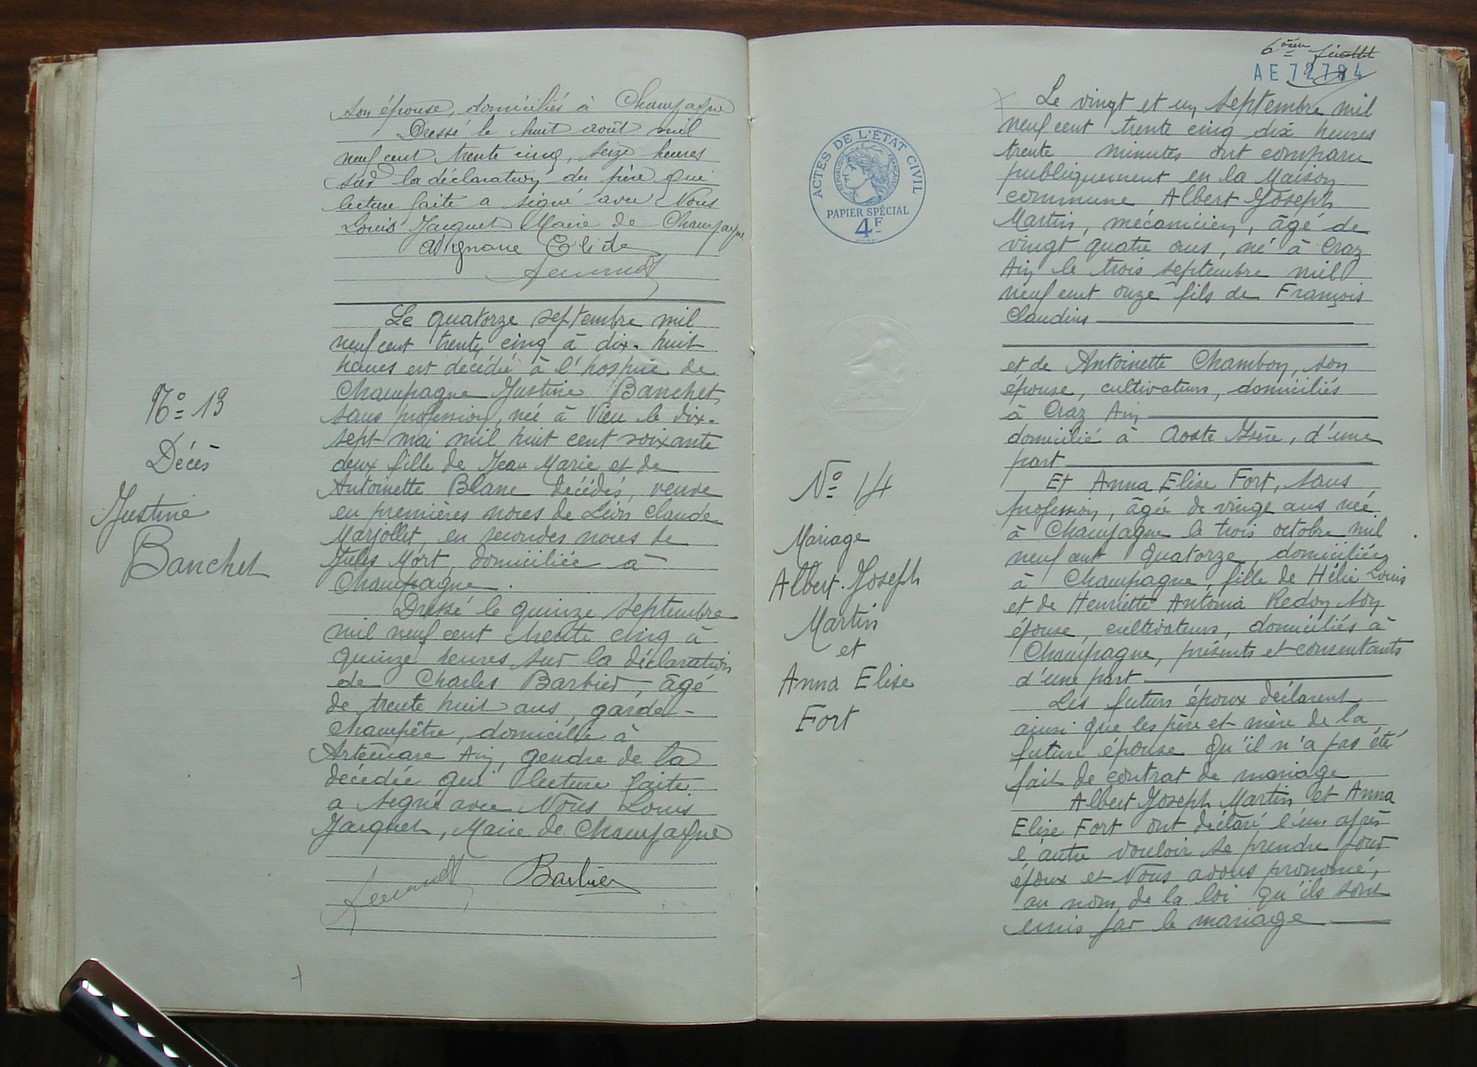 son épouse, domiciliés à Champagne
Dressé le huit août mil
neuf cent trente cinq, seize heures
sur la déclaration du père qui
lecture faite a signé avec Nous
Louis Jacquet Maire de Champagne
N° 13
Décès
Justine
Banchet
Le quatorze septembre mil
neuf cent trente cinq à dix-huit
heures est décédé à l'hospice de
Champagne Justine Banchet,
sans profession, née à Vieu le dix-
sept mai mil huit cent soixante
deux fille de Jean Marie et de
Antoinette Blanc décédés, veuve
en premières noces de Léon Claude
Marjollet, en secondes noces de
Jules Mort, domiciliée à
Champagne.
Dressé le quinze septembre
mil neuf cent trente cinq à
quinze heures sur la déclaration
de Charles Barbier, âgé
de trente huit ans, garde-
champêtre, domicilié à
Artemare Ain, gendre de la
décédée qui lecture faite
a signé avec Nous Louis
Jacquet, Maire de Champagne
Barbier
6ème feuillet
AE72784
ACTES DE L'ETAT CIVIL
PAPIER SPÉCIAL
4F
N° 14
Mariage
Albert Joseph
Martin
et
Anna Elise
Fort
Le vingt et un septembre mil
neuf cent trente cinq dix heures
trente minutes ont comparu
publiquement en la Maison
commune Albert Joseph
Martin, mécanicien, âgé de
vingt quatre ans, né à Craz
Ain le trois septembre mil
neuf cent onze fils de François
Claudius
et de Antoinette Chambon, son
épouse, cultivateurs, domiciliés
à Craz Ain
domicilié à Aoste Isère, d'une
part
Et Anna Elise Fort, sans
profession, âgée de vingt ans née
à Champagne le trois octobre mil
neuf cent quatorze, domiciliée
à Champagne fille de Hélie Louis
et de Henriette Antonia Redon son
épouse, cultivateurs, domiciliés à
Champagne, présents et consentants
d'une part
Les futurs époux déclarent
ainsi que les père et mère de la
future épouse qu'il n'a pas été
fait de contrat de mariage
Albert Joseph Martin et Anna
Elise Fort ont déclaré l'un après
l'autre vouloir se prendre pour
époux et Nous avons prononcé,
au nom de la loi qu'ils sont
unis par le mariage